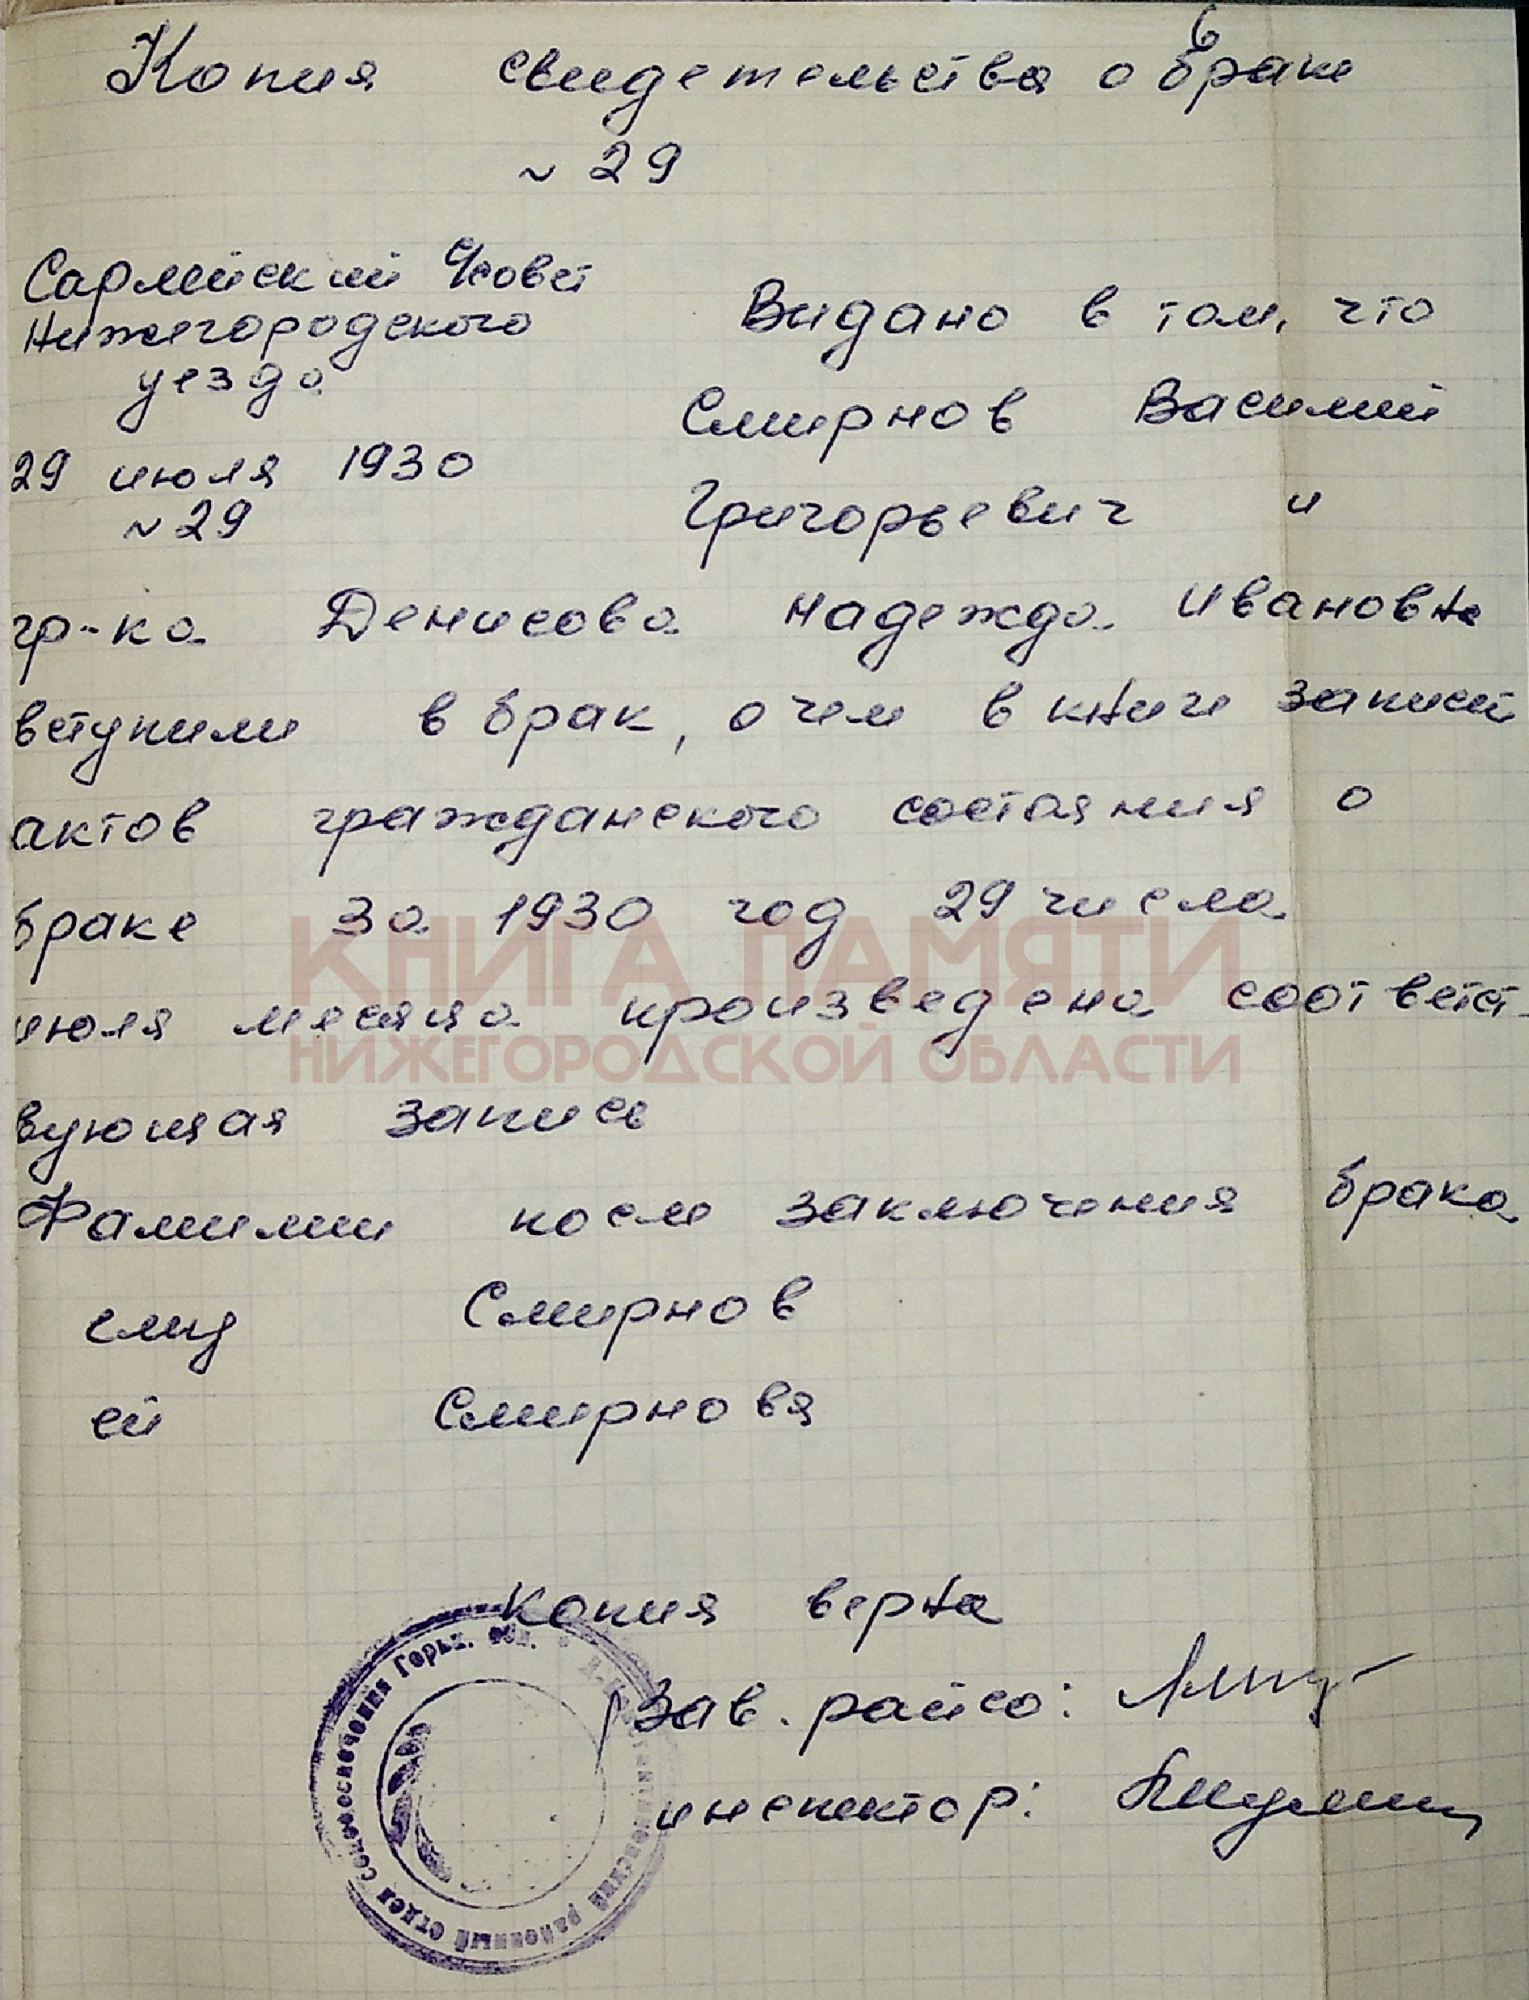 6
Копия свидетельства о браке
~ 29
Сарлейский с/совет
Нижегородского
уезда
29 июля 1930
~ 29
Выдано в том, что
Смирнов Василий
Григорьевич и
гр-ка Денисова Надежда Ивановна
вступили в брак, о чем в книге записей
актов гражданского состояния о
браке за 1930 год 29 числа
июля месяца произведена соответст-
вующая запись
Фамилии после заключения брака
ему Смирнов
ей Смирновя
Копия верна
Зав. райсо:
инспектор:
КНИГА ПАМЯТИ
НИЖЕГОРОДСКОЙ ОБЛАСТИ
районный отдел соцобеспечения Горьк. обл.